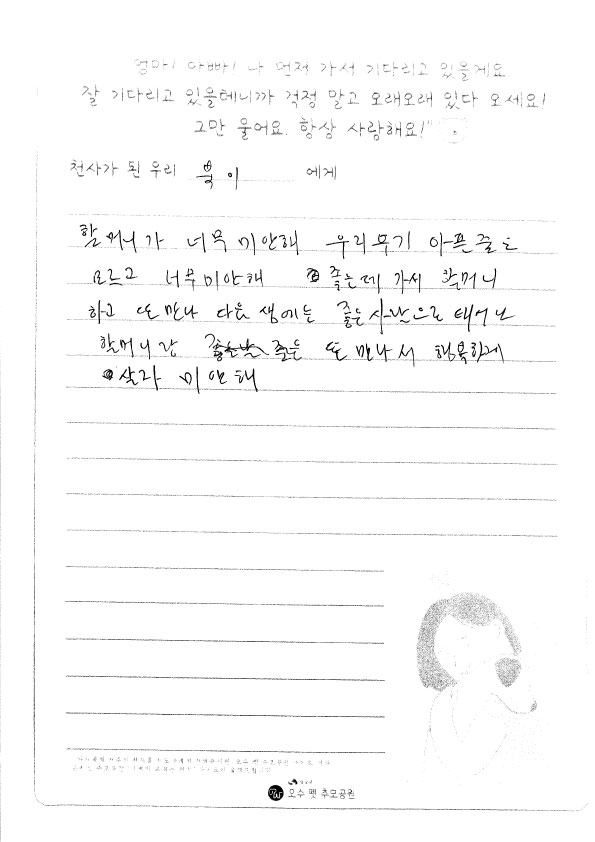 엄마! 아빠! 나 먼저 가서 기다리고 있을게요
잘 기다리고 있을테니까 걱정 말고 오래오래 있다 오세요!
그만 울어요. 항상 사랑해요!"
천사가 된 우리 묵이 에게
할머니가 너무 미안해 우리무기 아픈줄도
모르고 너무미안해 좋은데 가서 할머니
하고 또 만나 다음 생에는 좋은 사람으로 태어나
할머니랑 좋은 또 만나서 행복하게
살자 미안해
오수 펫 추모공원